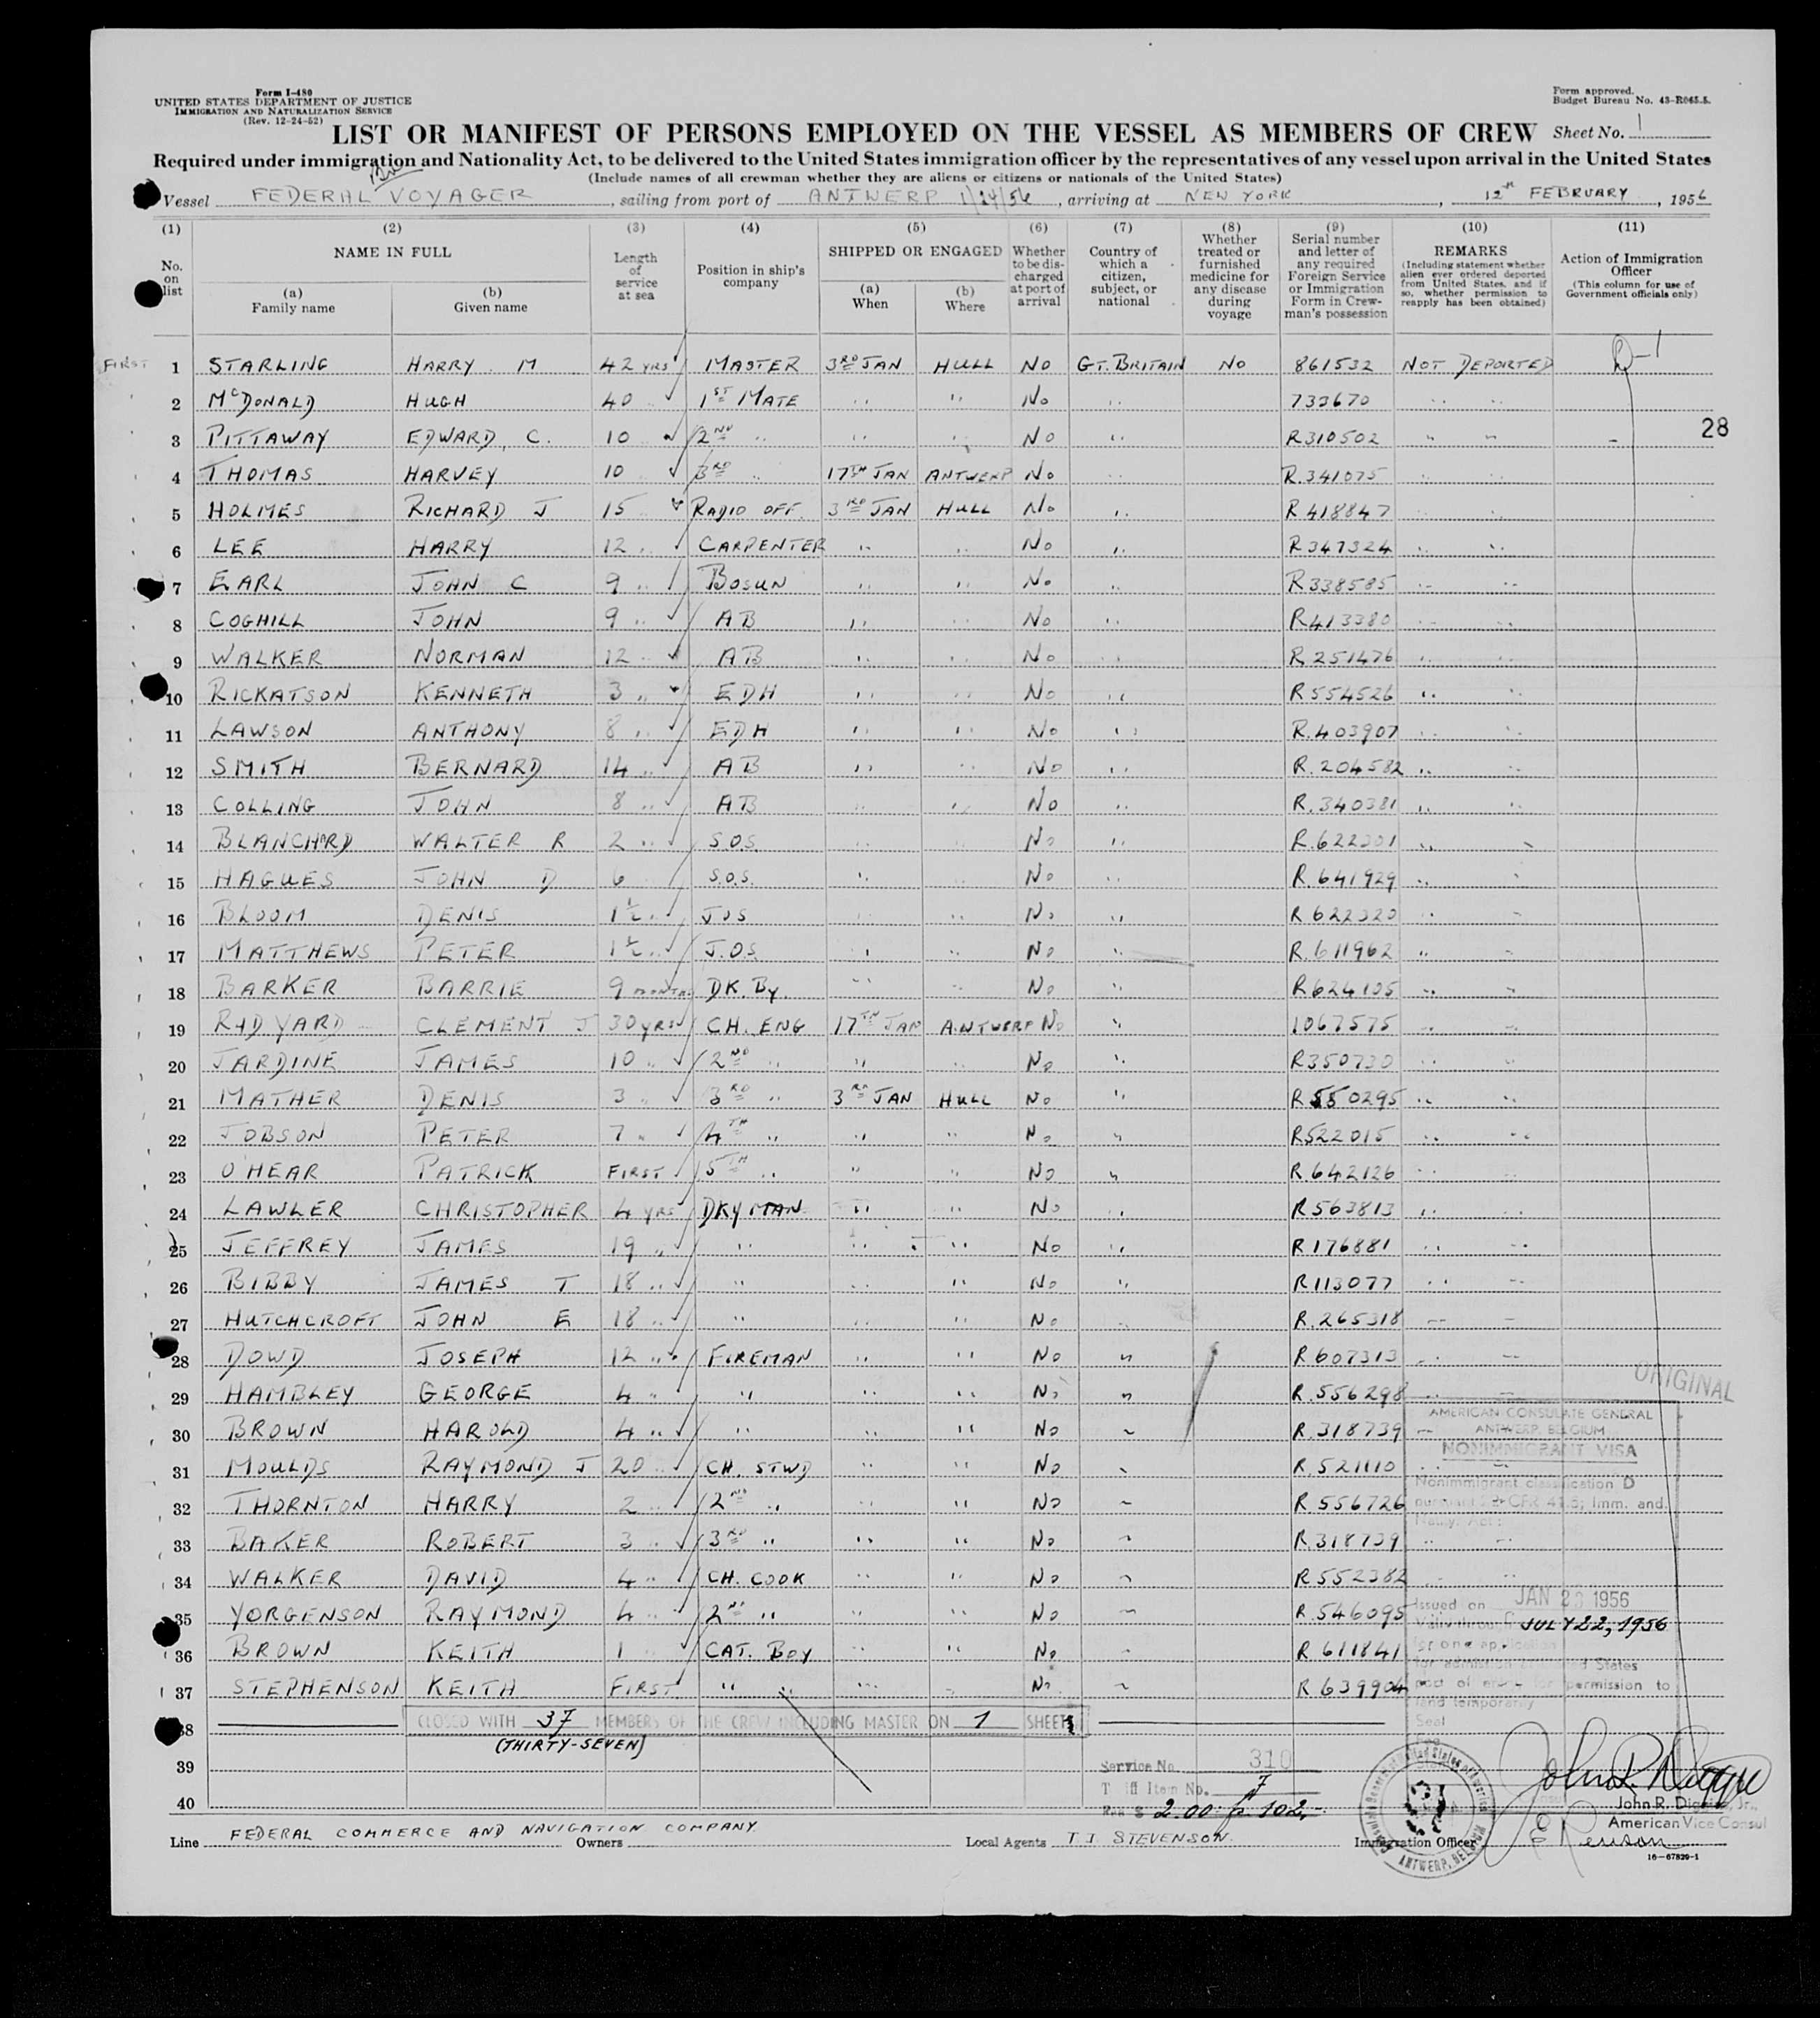 Form I-480
UNITED STATES DEPARTMENT OF JUSTICE
IMMIGRATION AND NATURALIZATION SERVICE
(Rev. 12-24-52)
Form approved.
Budget Bureau No. 43-R065.5.
LIST OR MANIFEST OF PERSONS EMPLOYED ON THE VESSEL AS MEMBERS OF CREW Sheet No. 1
Required under immigration and Nationality Act, to be delivered to the United States immigration officer by the representatives of any vessel upon arrival in the United States
(Include names of all crewman whether they are aliens or citizens or nationals of the United States)
Br
Vessel FEDERAL VOYAGER, sailing from port of ANTWERP 1/24/56, arriving at NEW YORK, 12TH FEBRUARY, 1956
(1) (2) (3) (4) (5) (6) (7) (8) (9) (10) (11)
No. on list
NAME IN FULL
(a) Family name
(b) Given name
Length of service at sea
Position in ship's company
SHIPPED OR ENGAGED
(a) When
(b) Where
Whether to be discharged at port of arrival
Country of which a citizen, subject, or national
Whether treated or furnished medicine for any disease during voyage
Serial number and letter of any required Foreign Service or Immigration Form in Crewman's possession
REMARKS
(Including statement whether alien ever ordered deported from United States, and if so, whether permission to reapply has been obtained)
Action of Immigration Officer
(This column for use of Government officials only)
FIRST 1 STARLING HARRY. M 42 YRS MASTER 3RD JAN HULL NO GT. BRITAIN NO 861532 NOT DEPORTED D-1
2 McDONALD HUGH 40 " 1ST MATE " " No " 733670 " "
28
3 PITTAWAY EDWARD. C. 10 " 2ND " " " NO " R310502 " "
4 THOMAS HARVEY 10 " 3RD " 17TH JAN ANTWERP No " R.341075 " "
5 HOLMES RICHARD J 15 " RADIO OFF. 3RD JAN HULL No " R418847 " "
6 LEE HARRY 12 " CARPENTER " " No " R347324 " "
7 EARL JOHN C 9 " BOSUN " " No " R338585 " "
8 COGHILL JOHN 9 " AB " " No " R413380 " "
9 WALKER NORMAN 12 " AB " " No " R251476 " "
10 RICKATSON KENNETH 3 " EDH " " No " R554526 " "
11 LAWSON ANTHONY 8 " EDH " " No " R.403907 " "
12 SMITH BERNARD 14 " AB " " No " R.204582 " "
13 COLLING JOHN 8 " AB " " No " R.340381 " "
14 BLANCHARD WALTER R 2 " S.O.S. " " No " R.622301 " "
15 HAGUES JOHN D 6 S.O.S. " " No " R.641929 " "
16 BLOOM DENIS 1½ " JOS " " No " R622320 " "
17 MATTHEWS PETER 1½ " J.O.S. " " No " R.611962 " "
18 BARKER BARRIE 9 MONTHS DK. By. " " No " R624105 " "
19 RUDYARD CLEMENT J 30 yrs CH. ENG 17TH JAN ANTWERP No " 1067575 " "
20 JARDINE JAMES 10 " 2ND " " " No " R350730 " "
21 MATHER DENIS 3 " 3RD " 3RD JAN HULL No " R550295 " "
22 JOBSON PETER 7 " 4TH " " " No " R522015 " "
23 O'HEAR PATRICK FIRST 5TH " " " No " R642126 " "
24 LAWLER CHRISTOPHER 4 YRS DKYMAN " " No " R563813 " "
25 JEFFREY JAMES 19 " " " " No " R176881 " "
26 BIBBY JAMES T 18 " " " " No " R113077 " "
27 HUTCHCROFT JOHN E 18 " " " " No " R.265318 " "
28 DOWD JOSEPH 12 " FIREMAN " " No " R607313 " "
29 HAMBLEY GEORGE 4 " " " " No " R.556298 " "
30 BROWN HAROLD 4 " " " " No " R.318739 "
31 MOULDS RAYMOND J 20 " CH. STWD " " No " R.521110 " "
32 THORNTON HARRY 2 " 2ND " " " No " R.556726
33 BAKER ROBERT 3 " 3RD " " " No " R.318739 " "
34 WALKER DAVID 4 " CH. COOK " " No " R552382 " "
35 YORGENSON RAYMOND 4 " 2ND " " " No " R.546095
36 BROWN KEITH 1 " CAT. BOY " " No " R611841
37 STEPHENSON KEITH FIRST " " " " No " R639904
38 CLOSED WITH 37 MEMBERS OF THE CREW INCLUDING MASTER ON 1 SHEET
(THIRTY-SEVEN)
39
40
ORIGINAL
AMERICAN CONSULATE GENERAL
ANTWERP, BELGIUM
NONIMMIGRANT VISA
Nonimmigrant classification D
pursuant 22 CFR 41.5; Imm. and
Natly. Act
Issued on JAN 23 1956
Valid through JULY 22, 1956
for one application
for admission United States
port of entry for permission to
land temporarily
Seal
Service No. 310
Tariff Item No. 7
Fee $ 2.00 102,-
John R. Diggins, Jr.,
American Vice Consul
ANTWERP, BELGIUM
Line FEDERAL COMMERCE AND NAVIGATION COMPANY Owners Local Agents T J STEVENSON. Immigration Officer
16-67829-1